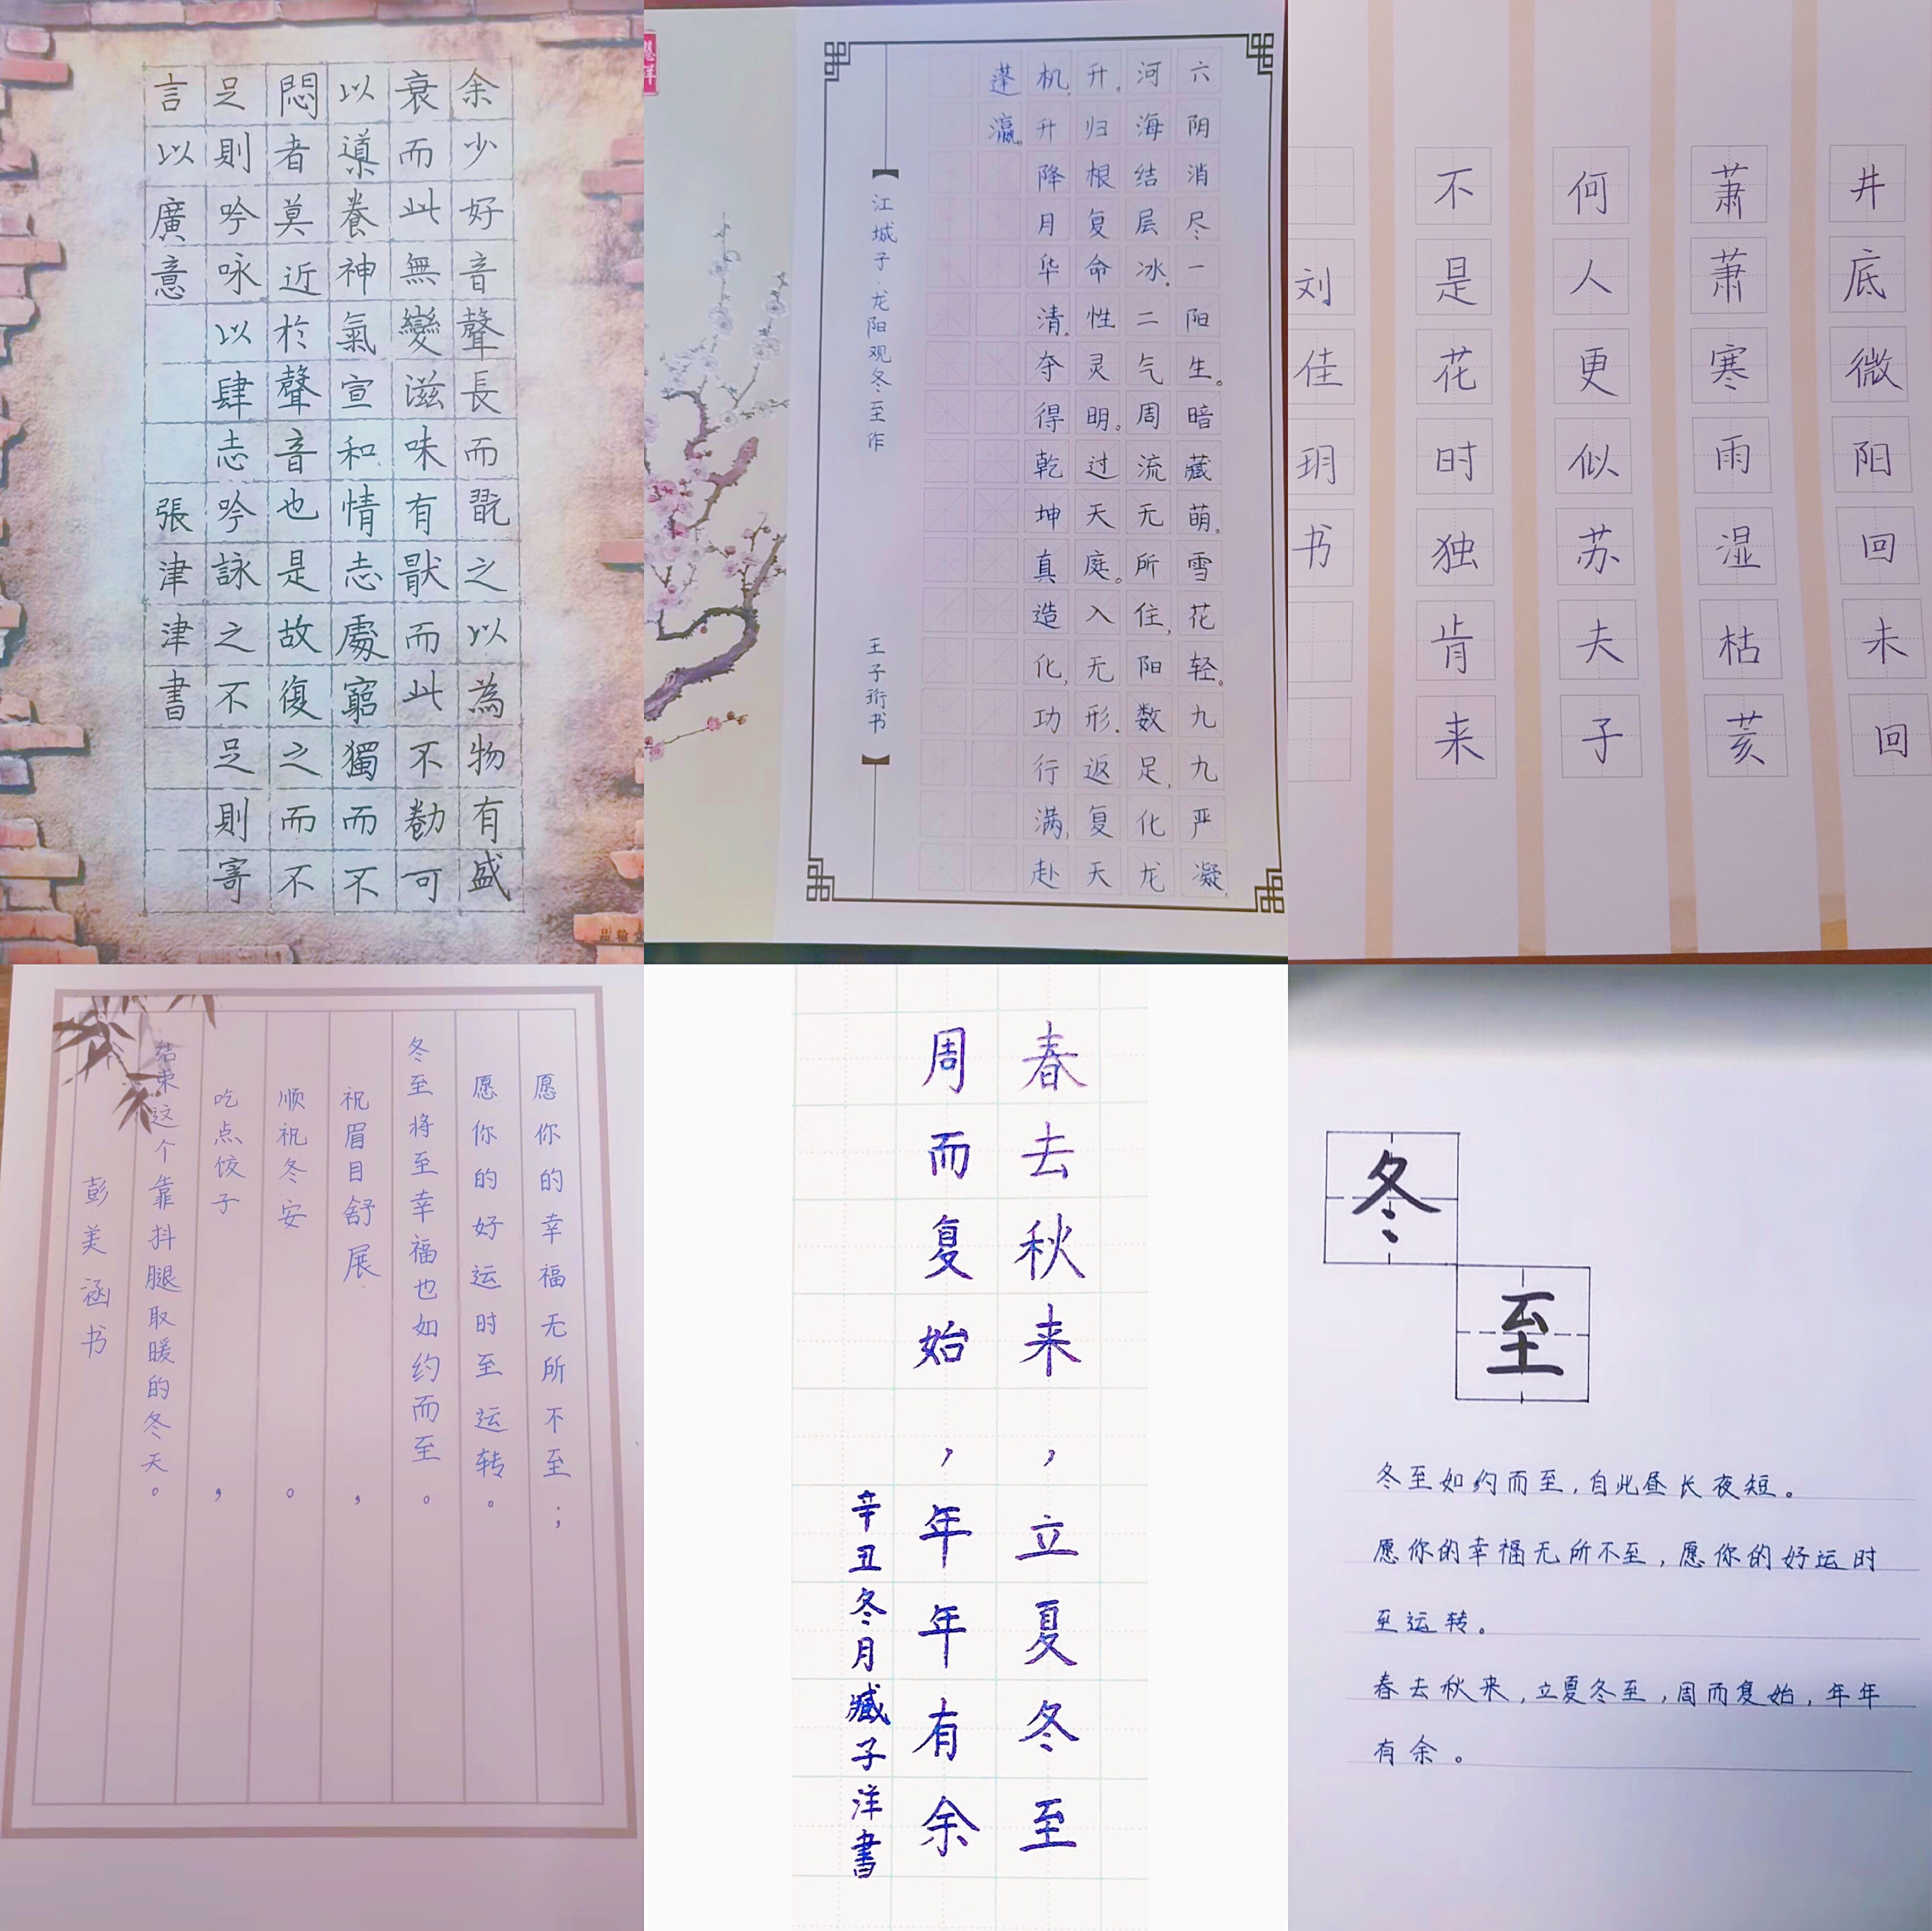 余少好音聲長而翫之以為物有盛
衰而此無變滋味有猒而此不勌可
以導養神氣宣和情志處窮獨而不
悶者莫近於聲音也是故復之而不
足則吟咏以肆志吟詠之不足則寄
言以廣意
張津津書
六阴消尽一阳生。暗藏萌。雪花轻。九九严凝,
河海结层冰。二气周流无所住,阳数足,化龙
升。归根复命性灵明。过天庭。入无形。返复天
机,升降月华清。夺得乾坤真造化,功行满,赴
蓬瀛。
【江城子·龙阳观冬至作 王子珩书】
井底微阳回未回
萧萧寒雨湿枯荄
何人更似苏夫子
不是花时独肯来
刘佳玥书
愿你的幸福无所不至；
愿你的好运时至运转。
冬至将至幸福也如约而至。
祝眉目舒展，
顺祝冬安。
吃点饺子，
结束这个靠抖腿取暖的冬天。
彭美涵书
春去秋来，立夏冬至
周而复始，年年有余
辛丑冬月臧子洋書
冬至
冬至如约而至，自此昼长夜短。
愿你的幸福无所不至，愿你的好运时
至运转。
春去秋来，立夏冬至，周而复始，年年
有余。